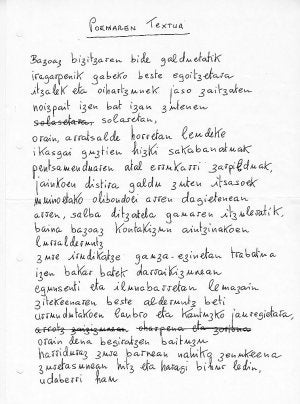 POEMAREN TEXTUA
Bazoaz bizitzaren bide galduetatik
iragarpenik gabeko beste egoitzetara
itzalek eta oihartzunek jaso zaitzaten
noizpait izen bat izan zutenen
solasetara, solaretan,
orain, arratsalde horretan lendeke
ikasgai guztien hizki sakabanatuak
pentsamenduaren atal errukarri zarpilduak,
jainkoen distira galdu zuten itsasoek
minoetako olibondoei arren dagietenean
arren, salba ditzatela gauaren itzuleratik,
baina bazoaz kontakizun aintzinakoen
lurralderuntz
zure irudikatze gauza-ezinetan trabatua
izen bakar batek darraikizunean
egunsenti eta ilunabarretan lemazain
zitekeenaren beste alderuntz beti
urrundutakoen lanbro eta kantuzko jauregietara,
arrotz zaizizunean oharpena eta zoriona
orain dena begiratzen baituzu
harridurez zure barnean nahikoa zenukeena
zuretasunean hitz eta haragi bihur ledin,
udaberri hau